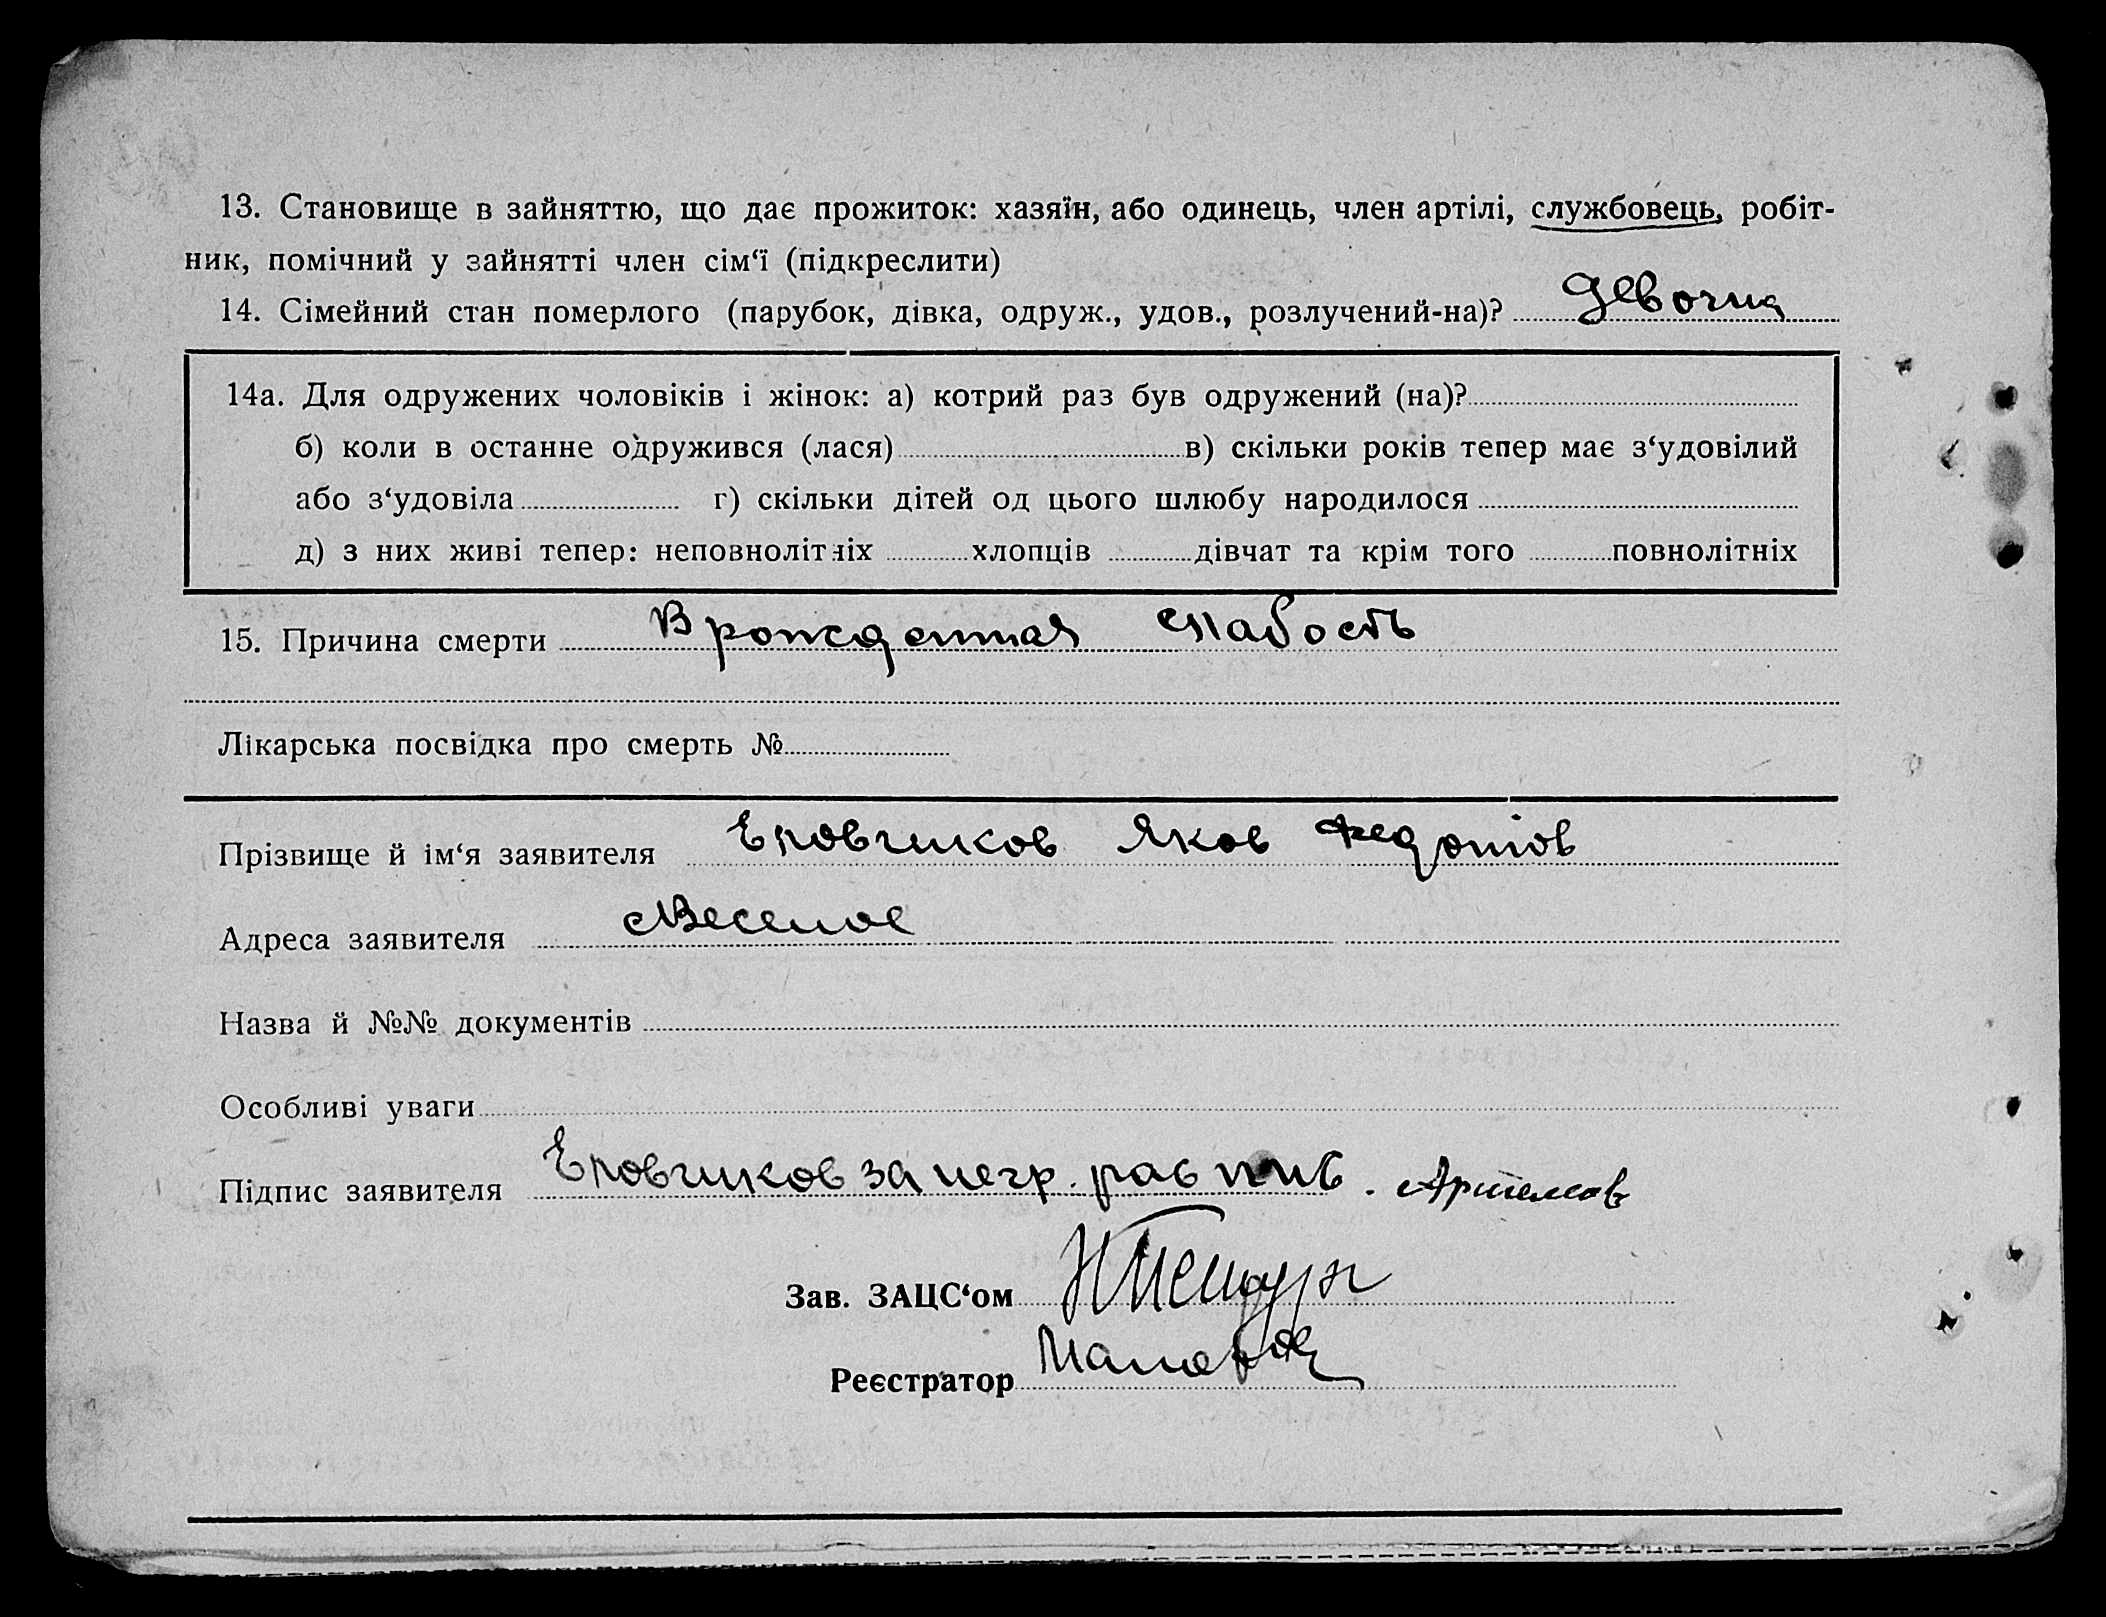 13. Становище в зайняттю, що дає прожиток: хазяїн, або одинець, член артілі, службовець, робіт-
ник, помічний у зайнятті член сім‘ї (підкреслити)
14. Сімейний стан померлого (парубок, дівка, одруж., удов., розлучений-на)?
14а. Для одружених чоловіків і жінок: а) котрий раз був одружений (на)?
б) коли в останне одружився (лася) в) скільки років тепер має з‘удовілий
або з‘удовіла г) скільки дітей од цього шлюбу народилося
д) з них живі тепер: неповнолітніх хлопців дівчат та крім того повнолітніх
15. Причина смерти Врожденная слабость
Лікарська посвідка про смерть №
Прізвище й ім‘я заявителя Еловчиков Яков Федотов
Адреса заявителя с Веселое
Назва й №№ документів
Особливі уваги
Підпис заявителя Еловчиков за негр. Артемов
Зав. ЗАЦС‘ом
Реєстратор